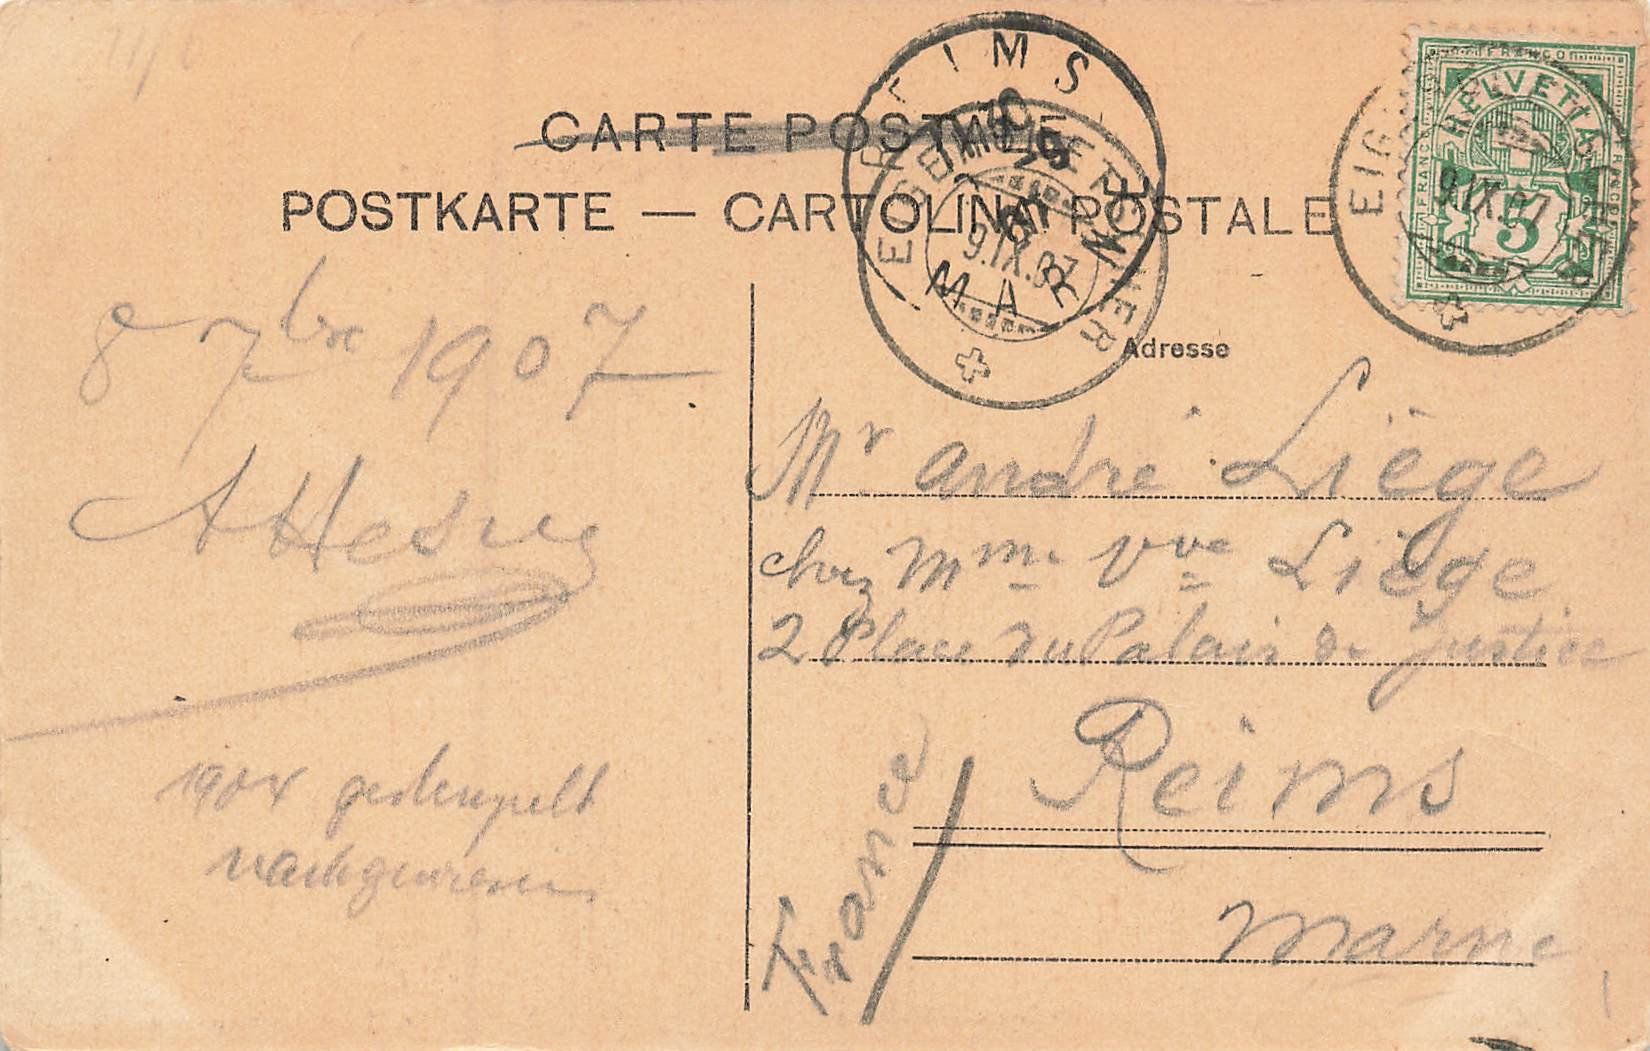 CARTE POSTALE
POSTKARTE — CARTOLINA POSTALE
REIMS
MARNE
EIGERGLETSCHER
9.IX.07
FRANCO
HELVETIA
FRANCO
FRANCO
5
9.IX.07
Adresse
8 7bre 1907
Mr André Liège
chez Mme Vve Liège
2 Place du Palais de Justice
Reims
Marne
France
1904 gestempelt